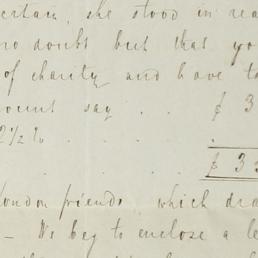 certain, she stood in rea
no doubt but that yo
of charity and have to
mount say . . $ 3
2½ % . . .
. . . $ 33
London friends, which dra
— We beg to enclose a le